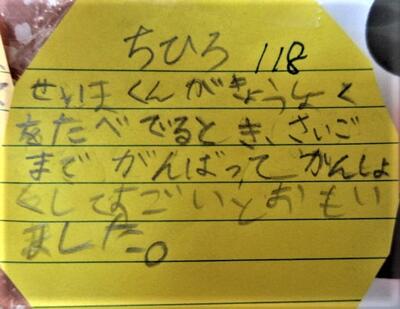 ちひろ 118
せいまくんがきょうしょく
をたべでるとき、さいご
まで がんばって がんしょ
くしてすごいとおもい
ました。